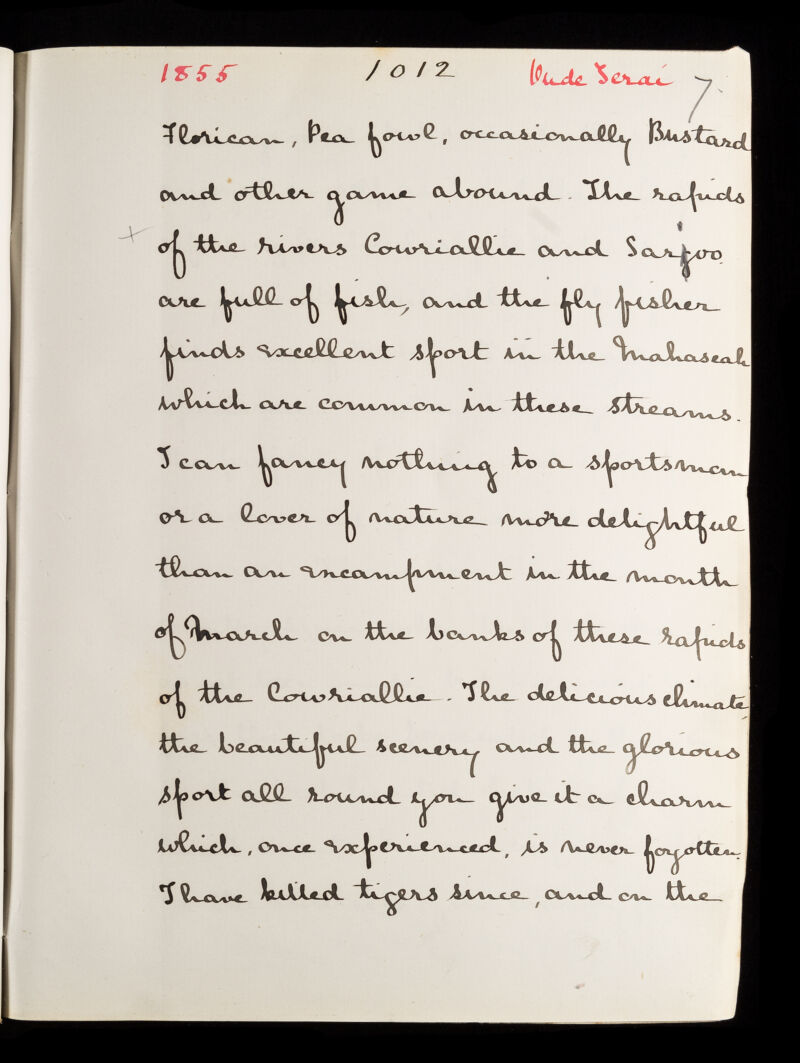 1855 1012 Oude Terai 7.
Florican, Pea fowl, occasionally Bustard
and other game abound. The rapids
of the rivers Cowriallie and Sarjoo
are full of fish, and the fly fisher
finds excellent sport in the Mahaseah
which are common in these streams.
I can fancy nothing to a sportsman
or a lover of nature more delightful
than an encampment in the month
of March on the banks of these rapids
of the Cowriallie. The delicious climate,
the beautiful scenery and the glorious
sport all round you give it a charm
which, once experienced, is never forgotten.
I have killed tigers since, and on the